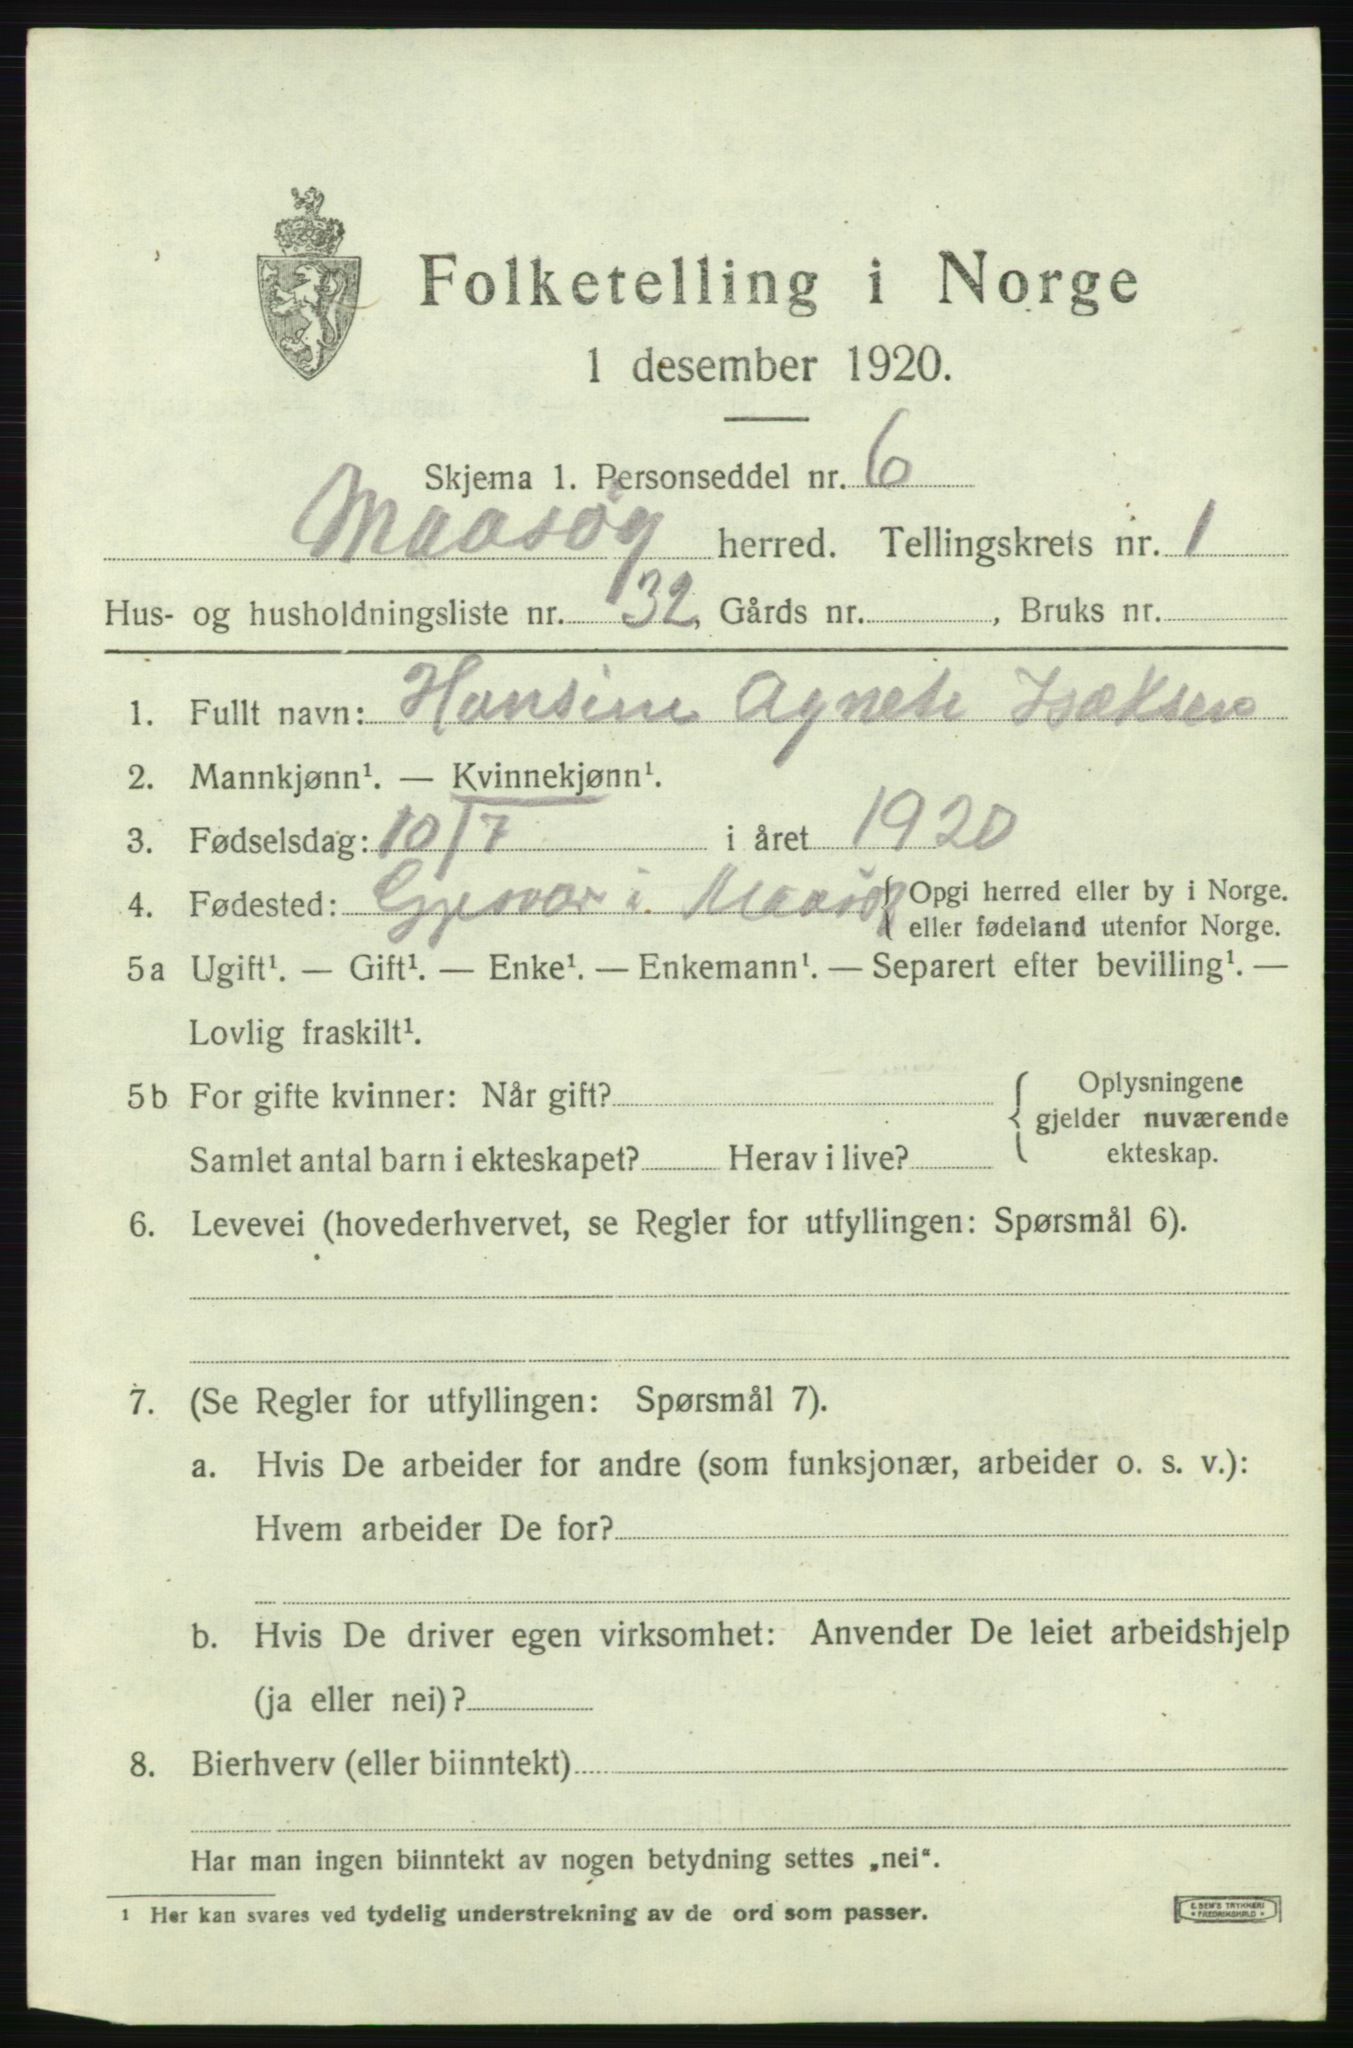 Folketelling i Norge
1 desember 1920.
Skjema 1. Personseddel nr. 6
Maasøy herred. Tellingskrets nr. 1
Hus- og husholdningsliste nr. 32, Gårds nr. , Bruks nr.
1. Fullt navn: Hansine Agnete Isæksen
2. Mannkjønn¹. — Kvinnekjønn¹.
3. Fødselsdag: 10/7 i året 1920
4. Fødested: Gjesvær i Maasøy { Opgi herred eller by i Norge.
eller fødeland utenfor Norge.
5a Ugift¹. — Gift¹. — Enke¹. — Enkemann¹. — Separert efter bevilling¹. —
Lovlig fraskilt¹.
5b For gifte kvinner: Når gift? { Oplysningene
gjelder nuværende
Samlet antal barn i ekteskapet? Herav i live? ekteskap.
6. Levevei (hovederhvervet, se Regler for utfyllingen: Spørsmål 6).
7. (Se Regler for utfyllingen: Spørsmål 7).
a. Hvis De arbeider for andre (som funksjonær, arbeider o. s. v.):
Hvem arbeider De for?
b. Hvis De driver egen virksomhet: Anvender De leiet arbeidshjelp
(ja eller nei)?
8. Bierhverv (eller biinntekt)
Har man ingen biinntekt av nogen betydning settes „nei“.
¹ Her kan svares ved tydelig understrekning av de ord som passer.
E. SEM'S TRYKKERI
* FREDRIKSHALD *